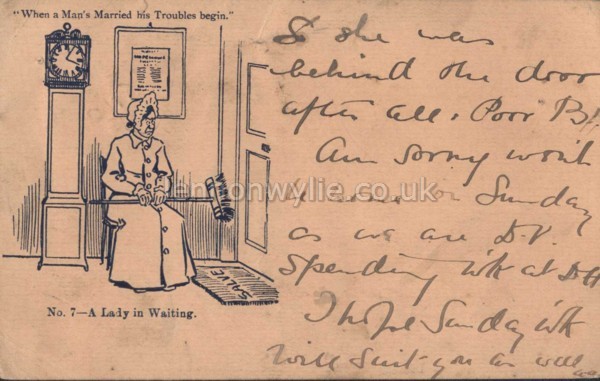 "When a Man's Married his Troubles begin."
SALVE
No. 7—A Lady in Waiting.
& she was
behind the door
after all. Poor
Am sorry won't
Sunday
as we are D.V.
Spending wk at
I hope Sunday wk
will suit you as well
antonwylie.co.uk